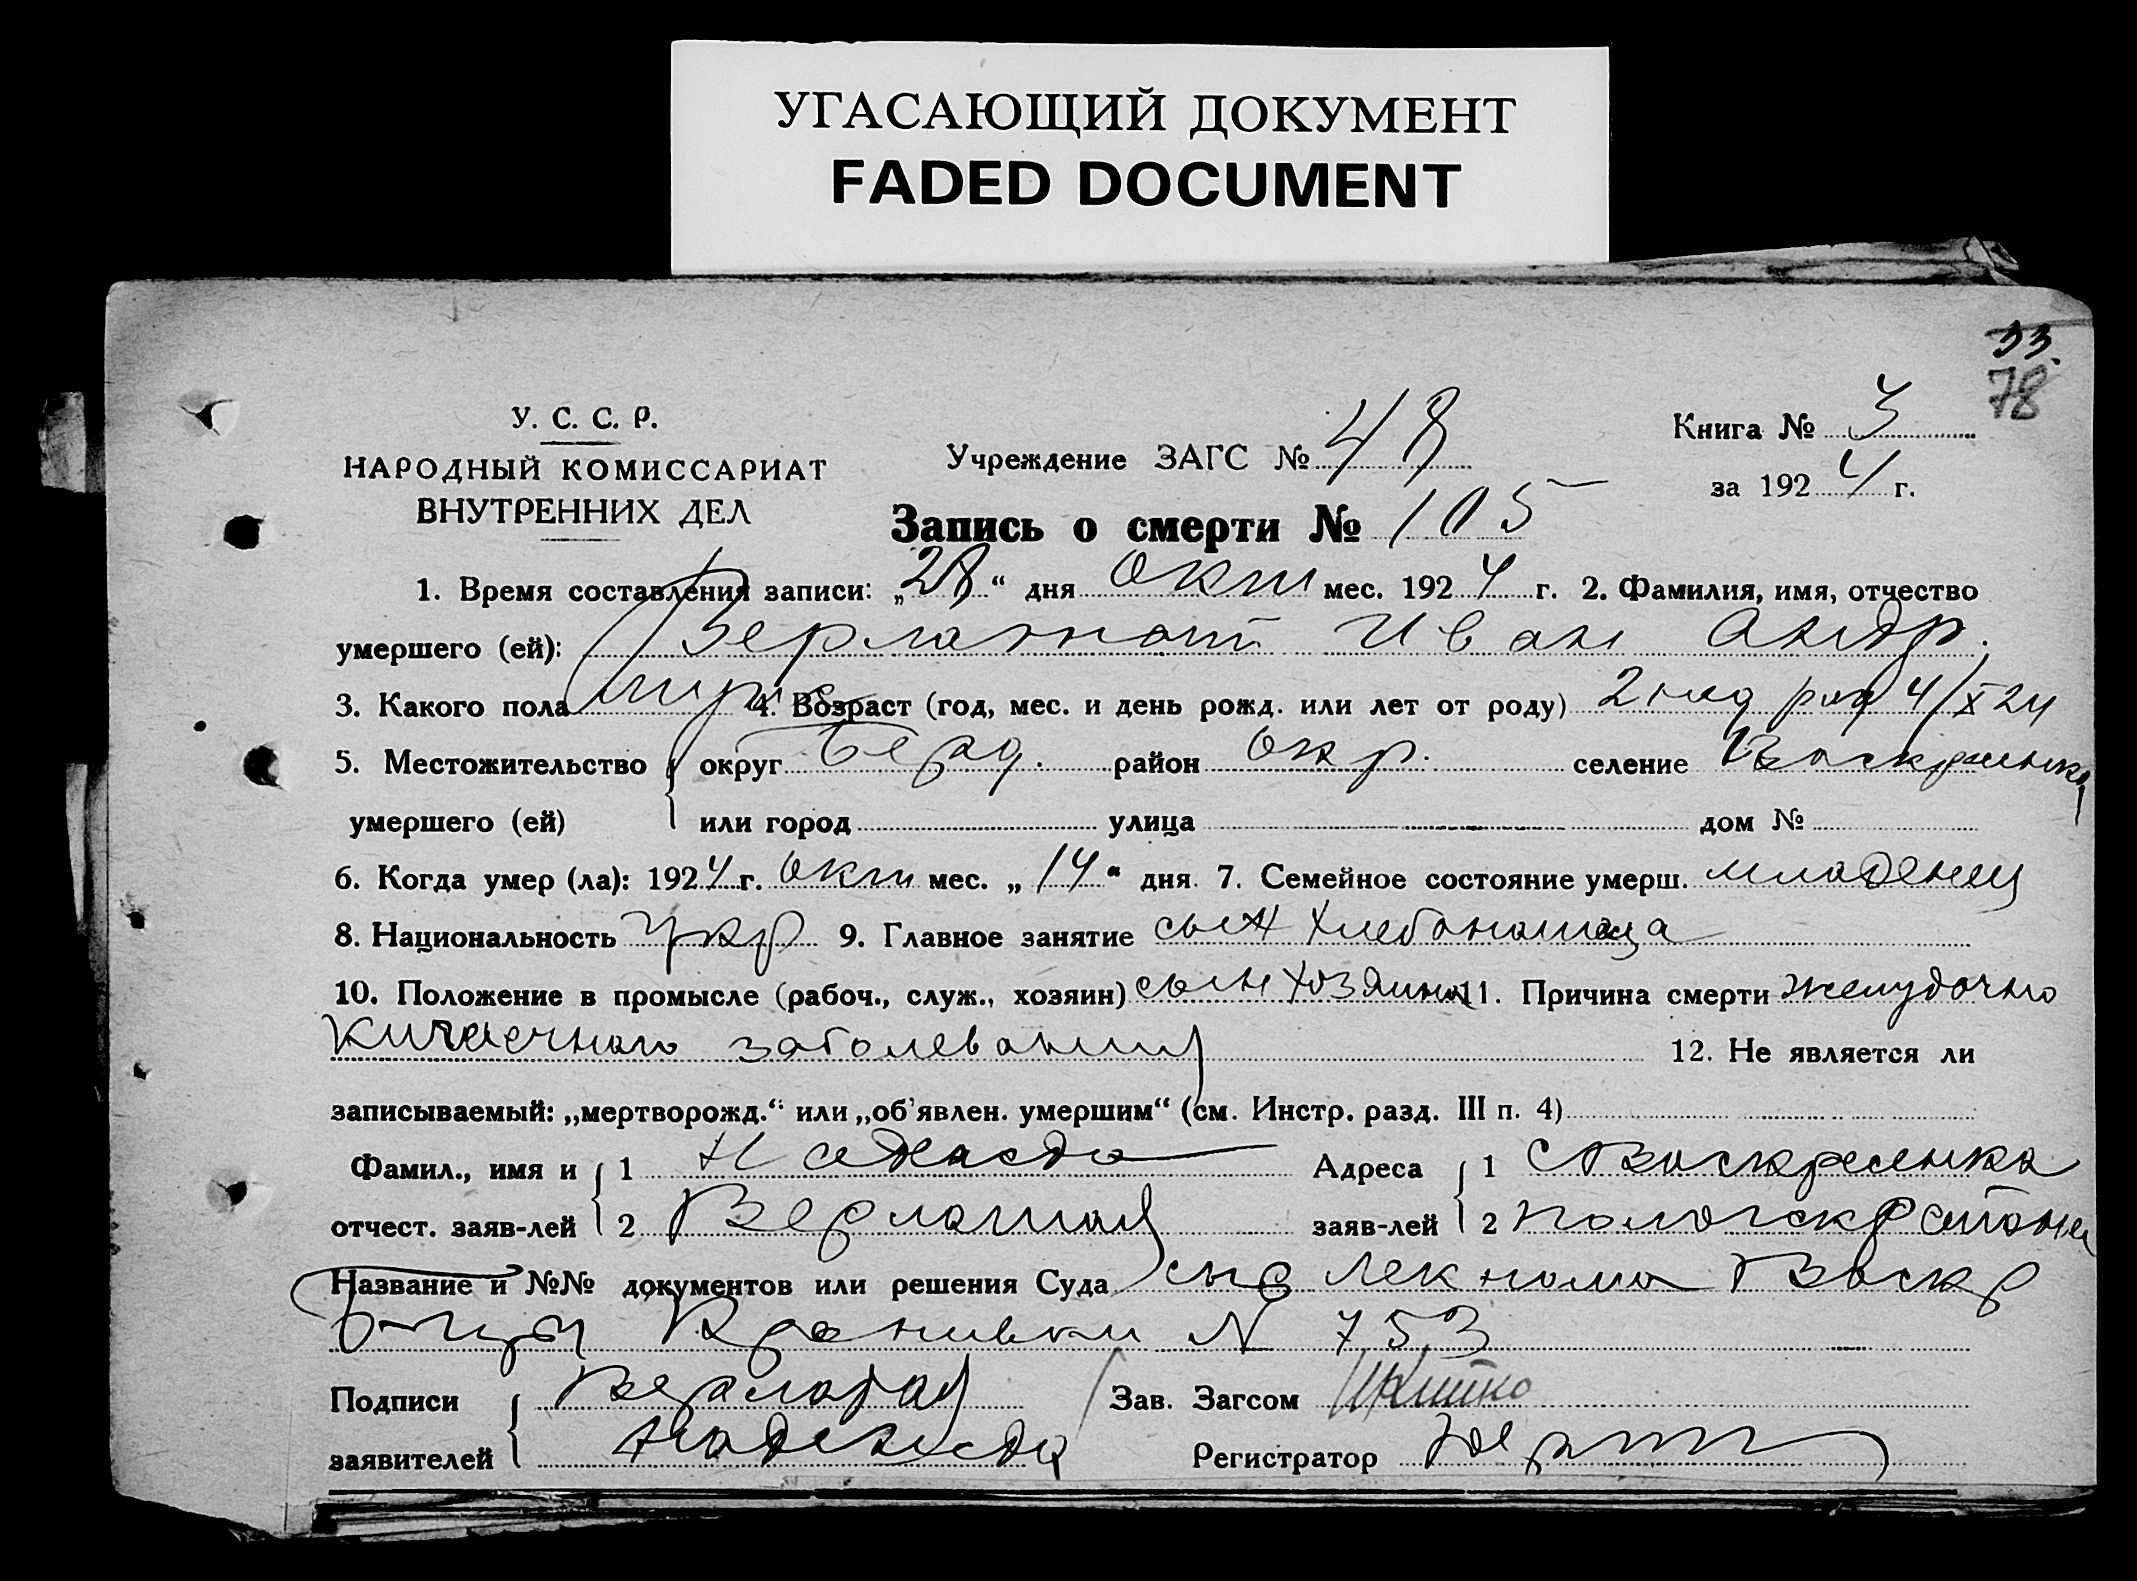 УГАСАЮЩИЙ ДОКУМЕНТ
FADED DOCUMENT
33.
78
У. С. С. Р.
НАРОДНЫЙ КОМИССАРИАТ
ВНУТРЕННИХ ДЕЛ
Учреждение ЗАГС № 48
Книга № 3
за 1924 г.
Запись о смерти № 105
1. Время составления записи: „28“ дня Окт мес. 1924 г. 2. Фамилия, имя, отчество
умершего (ей): Верлатый Иван Андр.
3. Какого пола муж 4. Возраст (год, мес. и день рожд. или лет от роду) 4/X 24
5. Местожительство округ Берд. район окр. селение Воскресенка
умершего (ей) или город улица дом №
6. Когда умер (ла): 1924 г. Окт мес. „14“ дня 7. Семейное состояние умерш. младенец
8. Национальность Укр 9. Главное занятие сын хлебопашца
10. Положение в промысле (рабоч., служ., хозяин) сын хозяина 11. Причина смерти желудочно
кишечного заболевания 12. Не является ли
записываемый: „мертворожд.“ или „об'явлен. умершим“ (см. Инстр. разд. III п. 4)
Фамил., имя и 1 Надежда Адреса 1 с Воскресенка
отчест. заяв-лей 2 Верлатая заяв-лей 2 Пологск района
Название и №№ документов или решения Суда лекпома Воскр
N 753
Подписи Верлатая Зав. Загсом
заявителей Надежда Регистратор